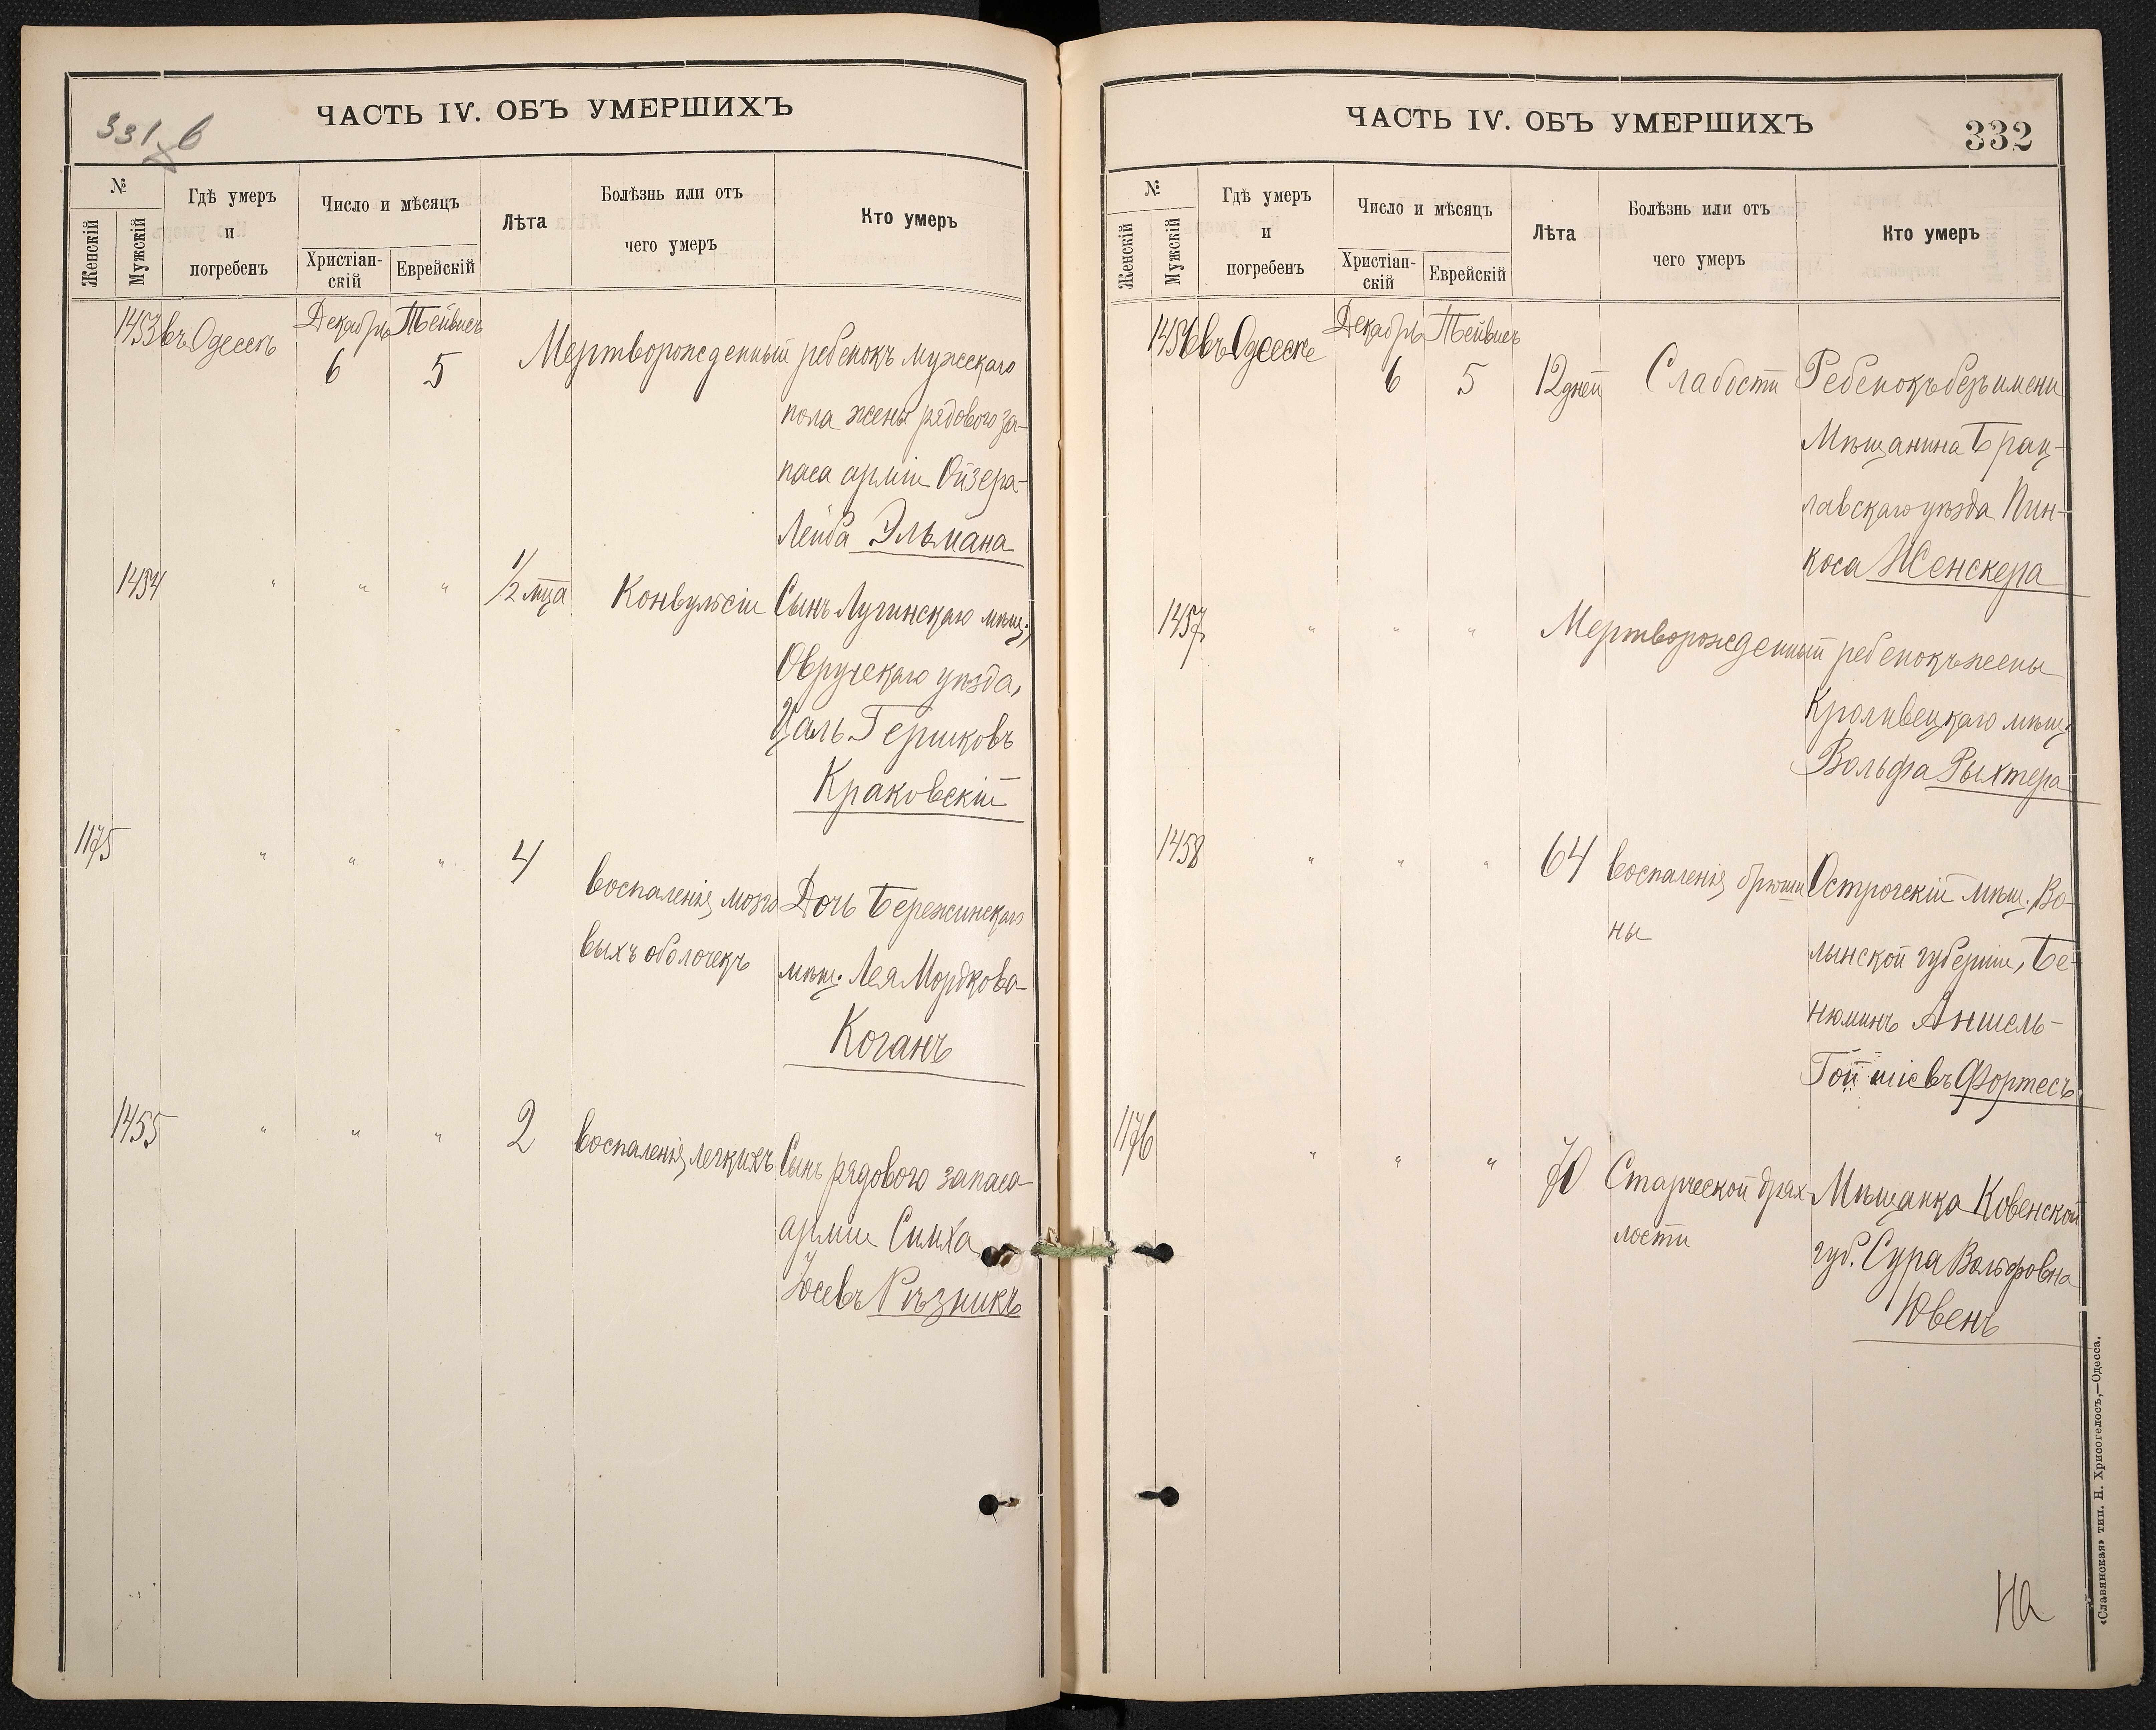 331 б
ЧАСТЬ IV. ОБЪ УМЕРШИХЪ
№
Женскій
Мужскій
Гдѣ умеръ
и
погребенъ
Число и мѣсяцъ
Христіан-
скій
Еврейскій
Лѣта
Болѣзнь или отъ
чего умеръ
Кто умеръ
1453 въ Одессѣ Декабрь Тейвисъ
6 5 Мертворожденный ребенокъ мужскаго
пола жены рядового за-
паса арміи Ойзера-
Лейба Эльмана
1454 " " " 1/2 мца Конвульсіи Сынъ Лугинскаго мѣщ.,
Овручскаго уѣзда,
Цаль Гершковъ
Краковскій
1175 " " " 4 воспаленія мозго Дочь Бережинскаго
выхъ оболочекъ мѣщ. Лея Мордкова
Коганъ
1455 " " " 2 воспаленія легкихъ Сынъ рядового запаса
арміи Симха
Іосевъ Рѣзникъ
ЧАСТЬ IV. ОБЪ УМЕРШИХЪ
332
№
Женскій
Мужскій
Гдѣ умеръ
и
погребенъ
Число и мѣсяцъ
Христіан-
скій
Еврейскій
Лѣта
Болѣзнь или отъ
чего умеръ
Кто умеръ
1456 въ Одессѣ Декабрь Тейвисъ
6 5 12 дней Слабости Ребенокъ безъ имени
Мѣщанина Брац-
лавскаго уѣзда Пин-
коса Женскера
1457 " " " Мертворожденный ребенокъ жены
Кролевецкаго мѣщ.
Вольфа Рыхтера
1458 " " " 64 воспаленія брюши Острогскій мѣщ. Во-
ны лынской губерніи, Бе-
нюминъ Аншель-
Фортесъ
1176 " " " 70 Старческой дрях- Мѣщанка Ковенской
лости губ. Сура Вольфовна
Ювенъ
На
«Славянская» тип. Н. Хрисогелосъ,—Одесса.